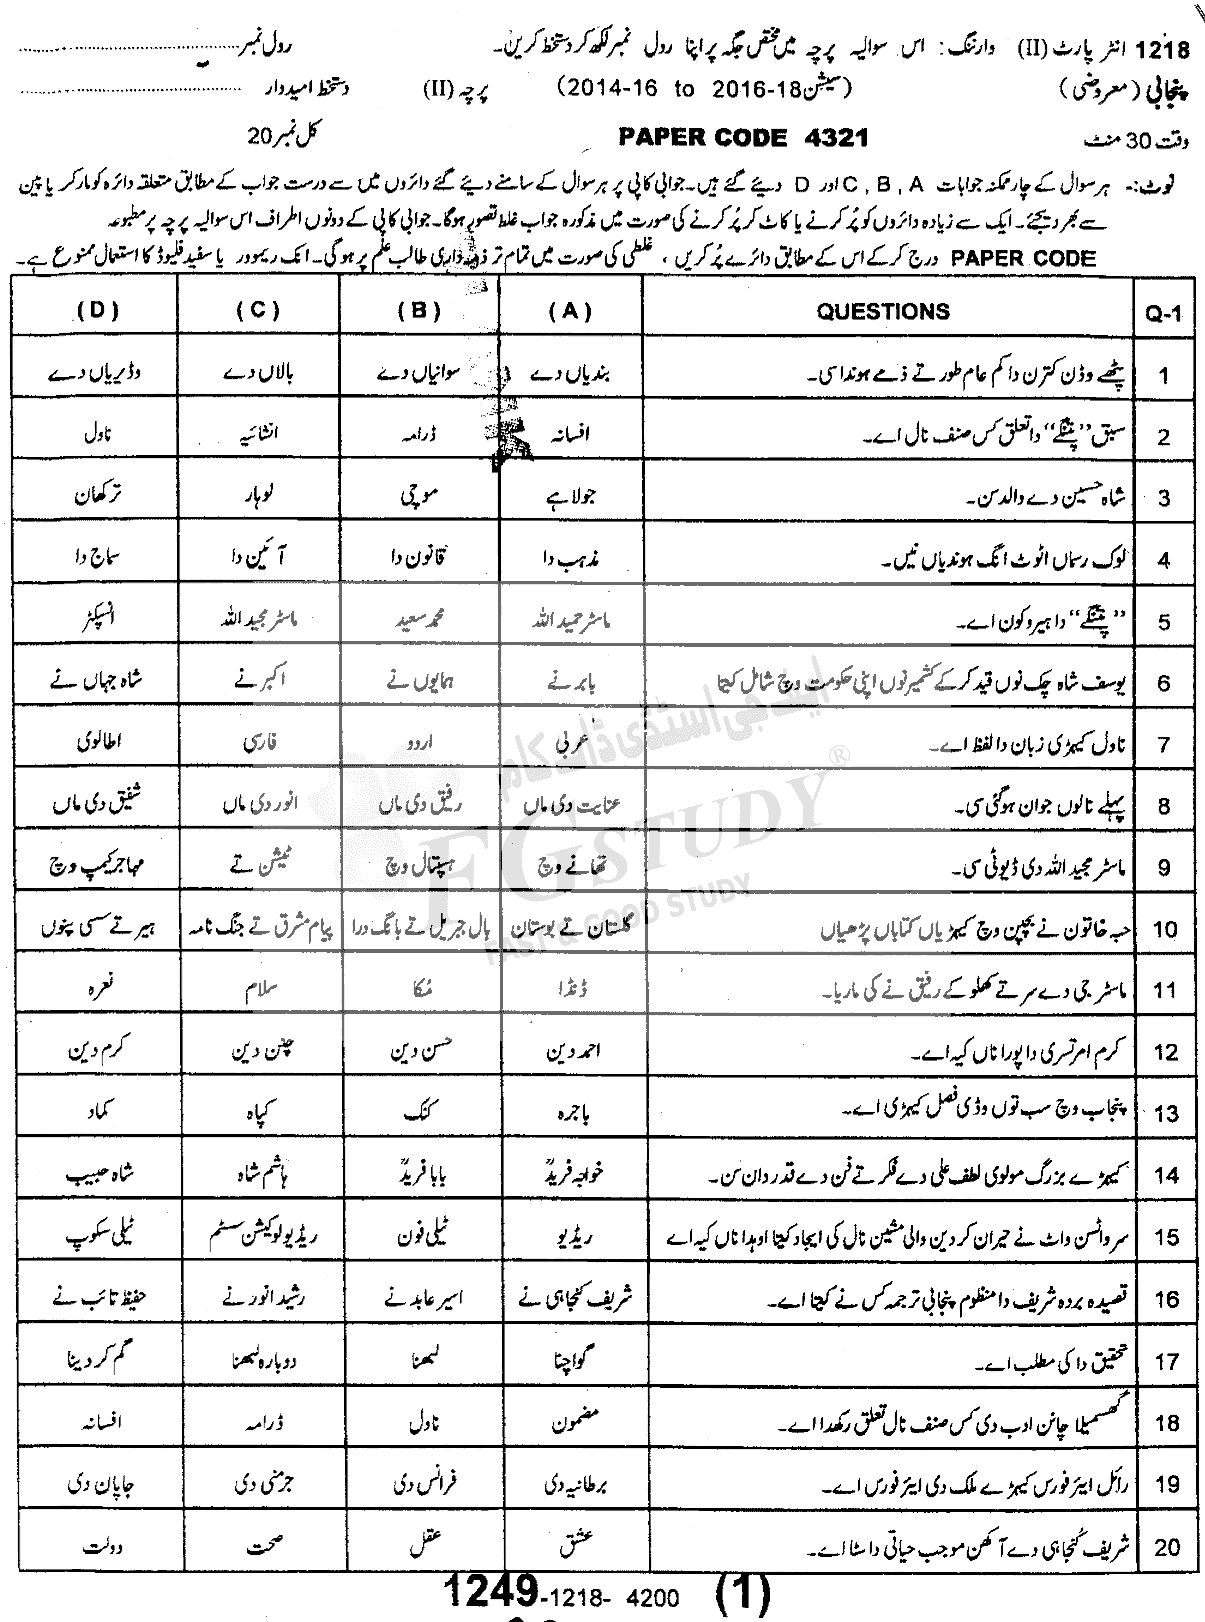 1218 انٹر پارٹ (II) وارننگ: اس سوالیہ پرچہ میں مختص جگہ پر اپنا رول نمبر لکھ کر دستخط کریں۔ رول نمبر
پنجابی (معروضی) (سیشن 2014-16 to 2016-18) پرچہ (II) دستخط امیدوار
وقت 30 منٹ PAPER CODE 4321 کل نمبر 20
نوٹ:۔ ہر سوال کے چار ممکنہ جوابات A ، B ، C اور D دیئے گئے ہیں۔ جوابی کاپی پر ہر سوال کے سامنے دیئے گئے دائروں میں سے درست جواب کے مطابق متعلقہ دائرہ کو مارکر یا پین
سے بھر دیجئے۔ ایک سے زیادہ دائروں کو پُر کرنے یا کاٹ کر پُر کرنے کی صورت میں مذکورہ جواب غلط تصور ہوگا۔ جوابی کاپی کے دونوں اطراف اس سوالیہ پرچہ پر مطبوعہ
PAPER CODE درج کر کے اس کے مطابق دائرے پُر کریں ، غلطی کی صورت میں تمام تر ذمہ داری طالب علم پر ہوگی۔ انک ریموور یا سفید فلیوڈ کا استعمال ممنوع ہے۔
Q-1 QUESTIONS (A) (B) (C) (D)
1 پٹھے وڈن کترن دا کم عام طور تے ذمے ہوندا سی۔ بندیاں دے سوانیاں دے بالاں دے وڈیریاں دے
2 سبق "پتنگے" دا تعلق کس صنف نال اے۔ افسانہ ڈرامہ انشائیہ ناول
3 شاہ حسین دے والد سن۔ جولاہے موچی لوہار ترکھان
4 لوک رسماں اٹوٹ انگ ہوندیاں نیں۔ مذہب دا قانون دا آئین دا سماج دا
5 "پتنگے" دا ہیرو کون اے۔ ماسٹر حمید اللہ محمد سعید ماسٹر مجید اللہ انسپکٹر
6 یوسف شاہ چک نوں قید کر کے کشمیر نوں اپنی حکومت وچ شامل کیتا بابر نے ہمایوں نے اکبر نے شاہ جہاں نے
7 ناول کیہڑی زبان دا لفظ اے۔ عربی اردو فارسی اطالوی
8 پہلے نالوں جوان ہوگئی سی۔ عنایت دی ماں رفیق دی ماں انور دی ماں شفیق دی ماں
9 ماسٹر مجید اللہ دی ڈیوٹی سی۔ تھانے وچ ہسپتال وچ ٹیشن تے مہاجر کیمپ وچ
10 حبہ خاتون نے بچپن وچ کیہڑیاں کتاباں پڑھیاں گلستان تے بوستان بال جبریل تے بانگ درا پیام مشرق تے جنگ نامہ ہیر تے سسی پنوں
11 ماسٹر جی دے سر تے کھلو کے رفیق نے کی ماریا۔ ڈنڈا مُکا سلام نعرہ
12 کرم امرتسری دا پورا ناں کیہ اے۔ احمد دین حسن دین چنن دین کرم دین
13 پنجاب وچ سب توں وڈی فصل کیہڑی اے۔ باجرہ کنک کپاہ کماد
14 کیہڑے بزرگ مولوی لطف علی دے فکر تے فن دے قدر دان سن۔ خواجہ فریدؒ بابا فریدؒ ہاشم شاہ شاہ حبیب
15 سر واٹسن واٹ نے حیران کر دین والی مشین نال کی ایجاد کیتا اوہدا ناں کیہ اے ریڈیو ٹیلی فون ریڈیو لوکیشن سسٹم ٹیلی سکوپ
16 قصیدہ بردہ شریف دا منظوم پنجابی ترجمہ کس نے کیتا اے۔ شریف کنجاہی نے اسیر عابد نے رشید انور نے حفیظ تائب نے
17 تحقیق دا کی مطلب اے۔ گواچنا لبھنا دوبارہ لبھنا گم کر دینا
18 گھسمیلا چانن ادب دی کس صنف نال تعلق رکھدا اے۔ مضمون ناول ڈرامہ افسانہ
19 رائل ایئر فورس کیہڑے ملک دی ایئر فورس اے۔ برطانیہ دی فرانس دی جرمنی دی جاپان دی
20 شریف کُنجاہی دے آکھن موجب حیاتی دا سٹا اے۔ عشق عقل صحت دولت
ایف جی اسٹڈی ڈاٹ کام
FGSTUDY®
FAST & GOOD STUDY
1249-1218- 4200 (1)